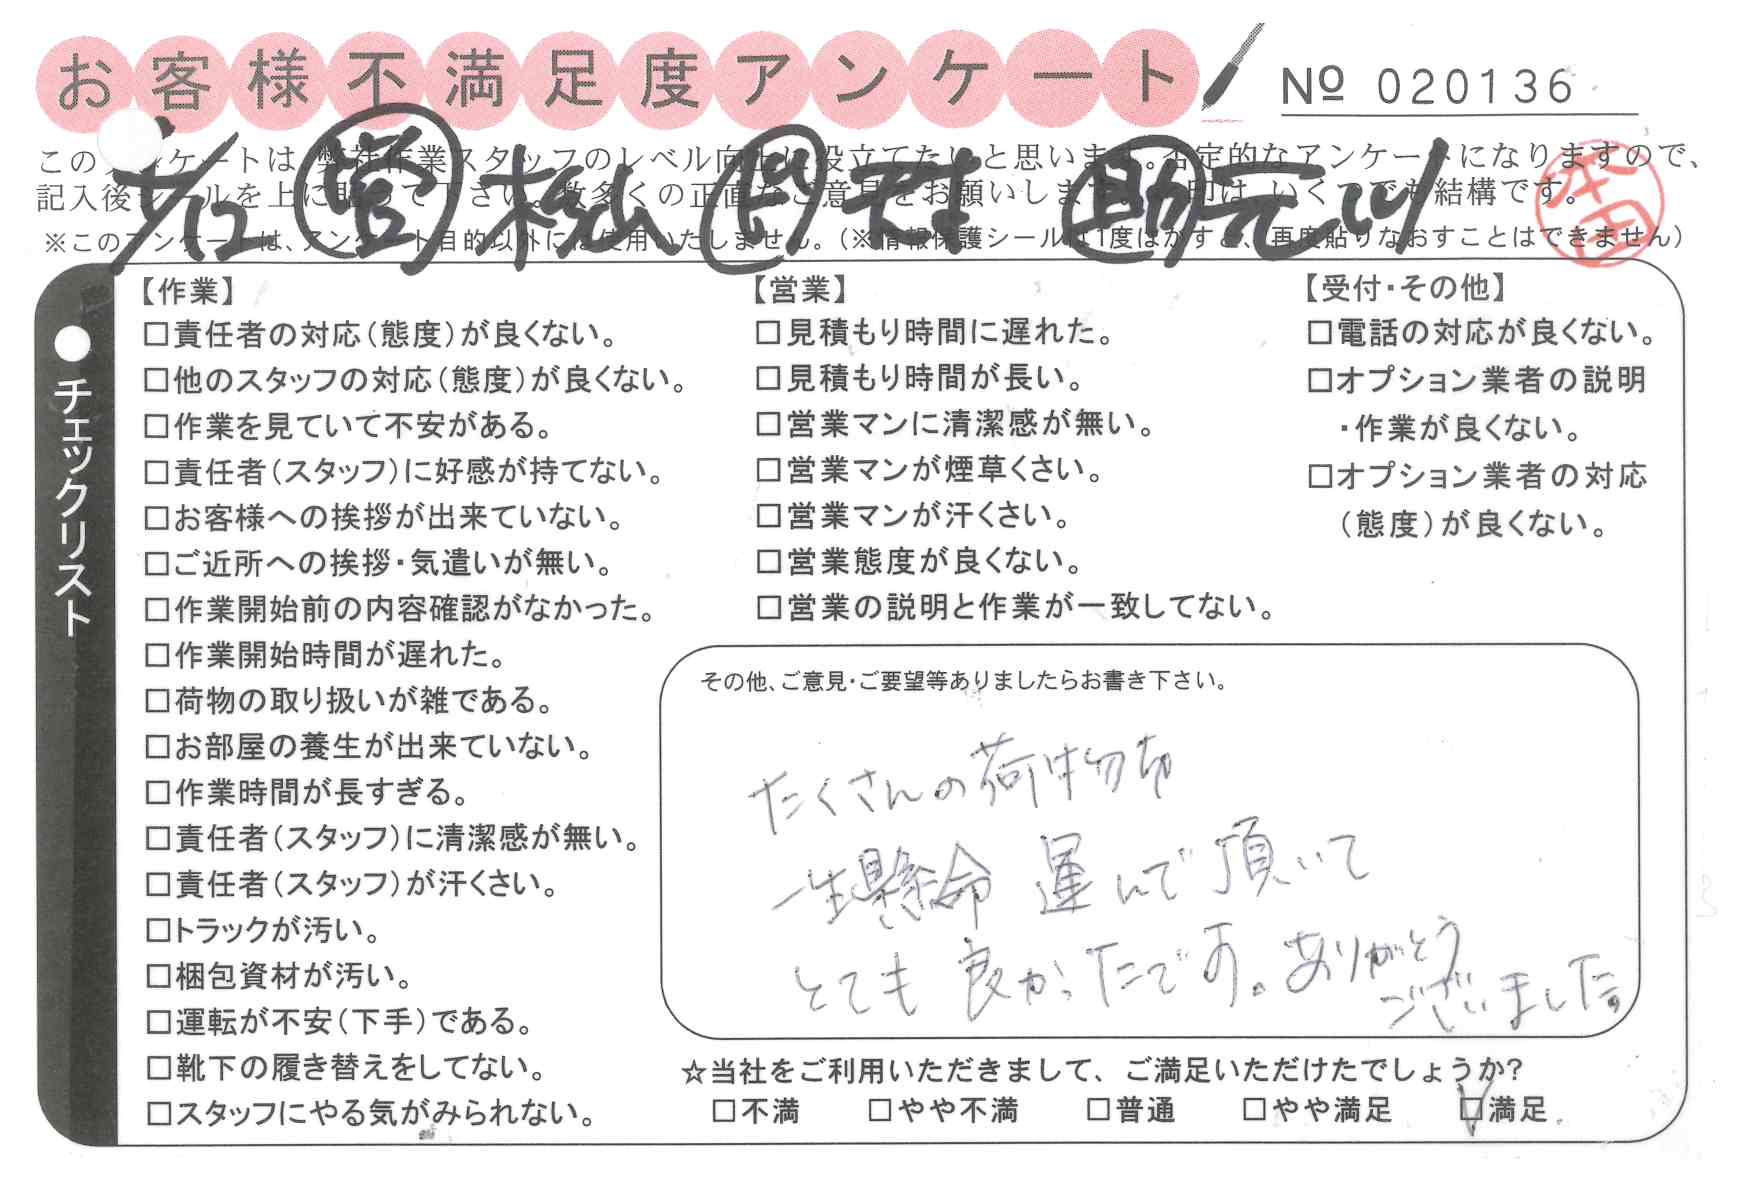 お客様不満足度アンケート
№ 020136
このアンケートは、弊社作業スタッフのレベル向上に役立てたいと思います。否定的なアンケートになりますので、
記入後シールを上に貼って下さい。数多くの正直なご意見をお願いします。 印は、いくつでも結構です。
※このアンケートは、アンケート目的以外には使用いたしません。(※情報保護シールは1度はがすと、再度貼りなおすことはできません)
/12 営 松山 助 元山
本田
●チェックリスト
【作業】
□責任者の対応(態度)が良くない。
□他のスタッフの対応(態度)が良くない。
□作業を見ていて不安がある。
□責任者(スタッフ)に好感が持てない。
□お客様への挨拶が出来ていない。
□ご近所への挨拶・気遣いが無い。
□作業開始前の内容確認がなかった。
□作業開始時間が遅れた。
□荷物の取り扱いが雑である。
□お部屋の養生が出来ていない。
□作業時間が長すぎる。
□責任者(スタッフ)に清潔感が無い。
□責任者(スタッフ)が汗くさい。
□トラックが汚い。
□梱包資材が汚い。
□運転が不安(下手)である。
□靴下の履き替えをしてない。
□スタッフにやる気がみられない。
【営業】
□見積もり時間に遅れた。
□見積もり時間が長い。
□営業マンに清潔感が無い。
□営業マンが煙草くさい。
□営業マンが汗くさい。
□営業態度が良くない。
□営業の説明と作業が一致してない。
【受付・その他】
□電話の対応が良くない。
□オプション業者の説明
・作業が良くない。
□オプション業者の対応
(態度)が良くない。
その他、ご意見・ご要望等ありましたらお書き下さい。
たくさんの荷物を
一生懸命 運んで頂いて
とても良かったです。ありがとう
ございました。
☆当社をご利用いただきまして、ご満足いただけたでしょうか?
□不満 □やや不満 □普通 □やや満足 □満足